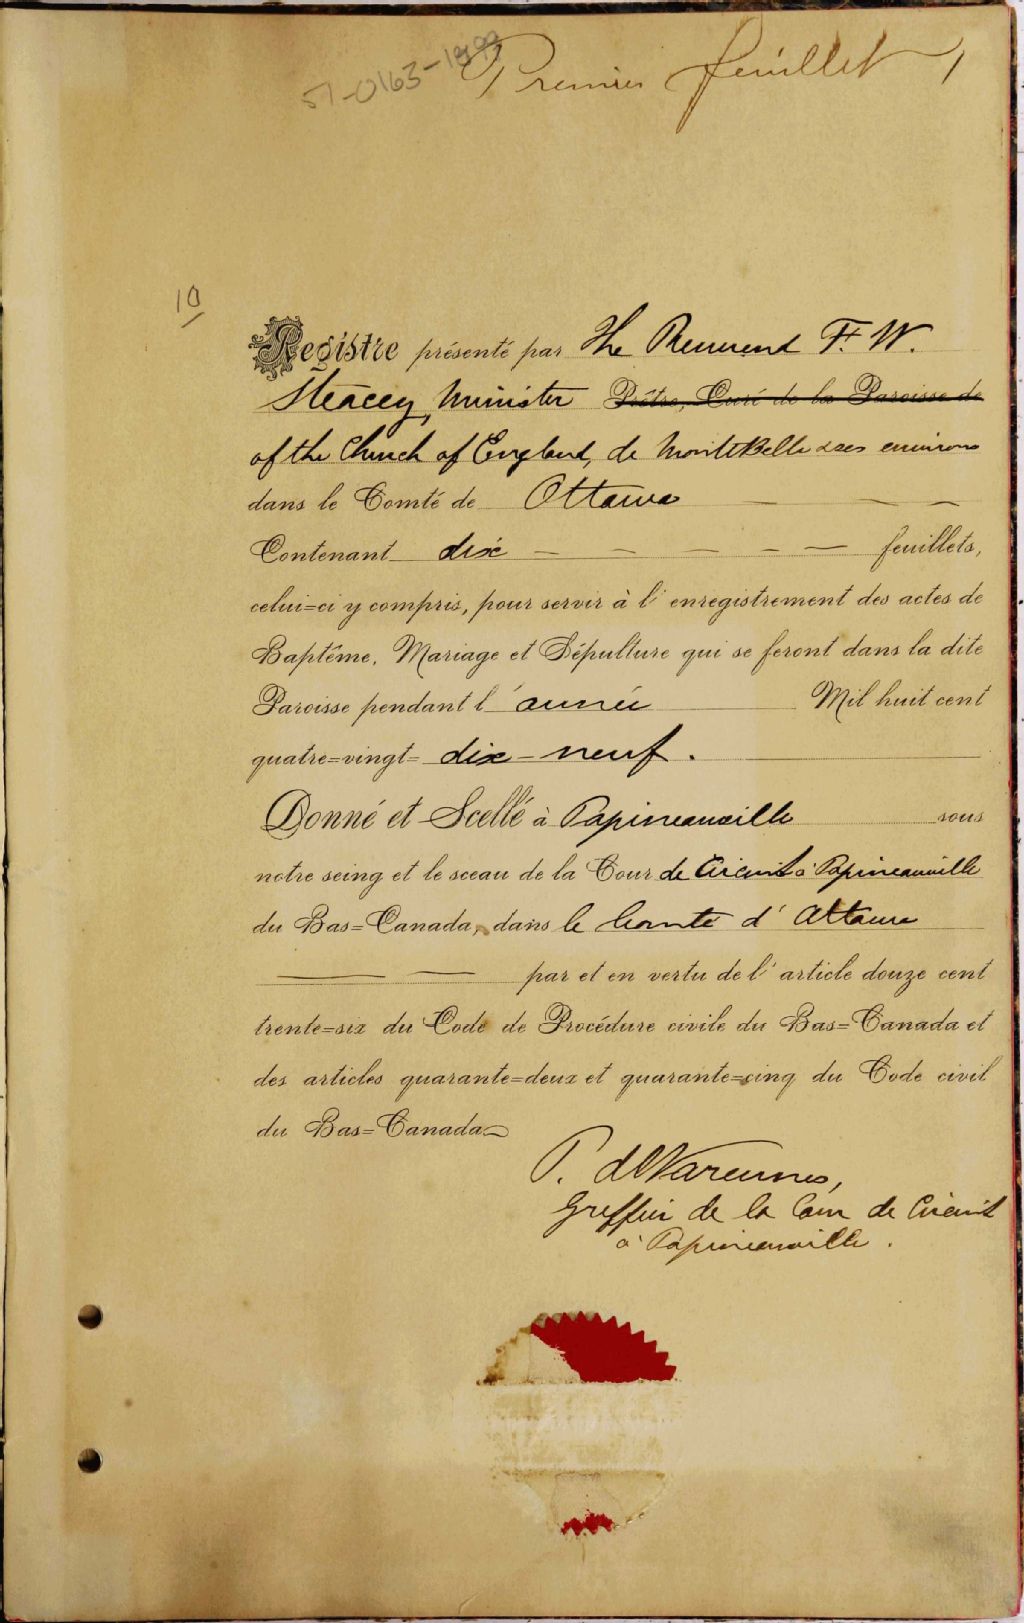 57-0163-1899
Premier feuillet 1
10
Registre présenté par The Reverend F. W.
Steacey, Minister Prêtre, Curé de la Paroisse de
of the Church of England, de MonteBello & ses environs
dans le Comté de Ottawa
Contenant dix feuillets,
celui=ci y compris, pour servir à l'enregistrement des actes de
Baptême, Mariage et Sépulture qui se feront dans la dite
Paroisse pendant l'année Mil huit cent
quatre=vingt= dix-neuf.
Donné et Scellé à Papineauville sous
notre seing et le sceau de la Cour de Circuit à Papineauville
du Bas=Canada, dans le Comté d'Ottawa
par et en vertu de l'article douze cent
trente=six du Code de Procédure civile du Bas=Canada et
des articles quarante=deux et quarante=cinq du Code civil
du Bas=Canada
P. deVarennes,
Greffier de la Cour de Circuit
à Papineauville.